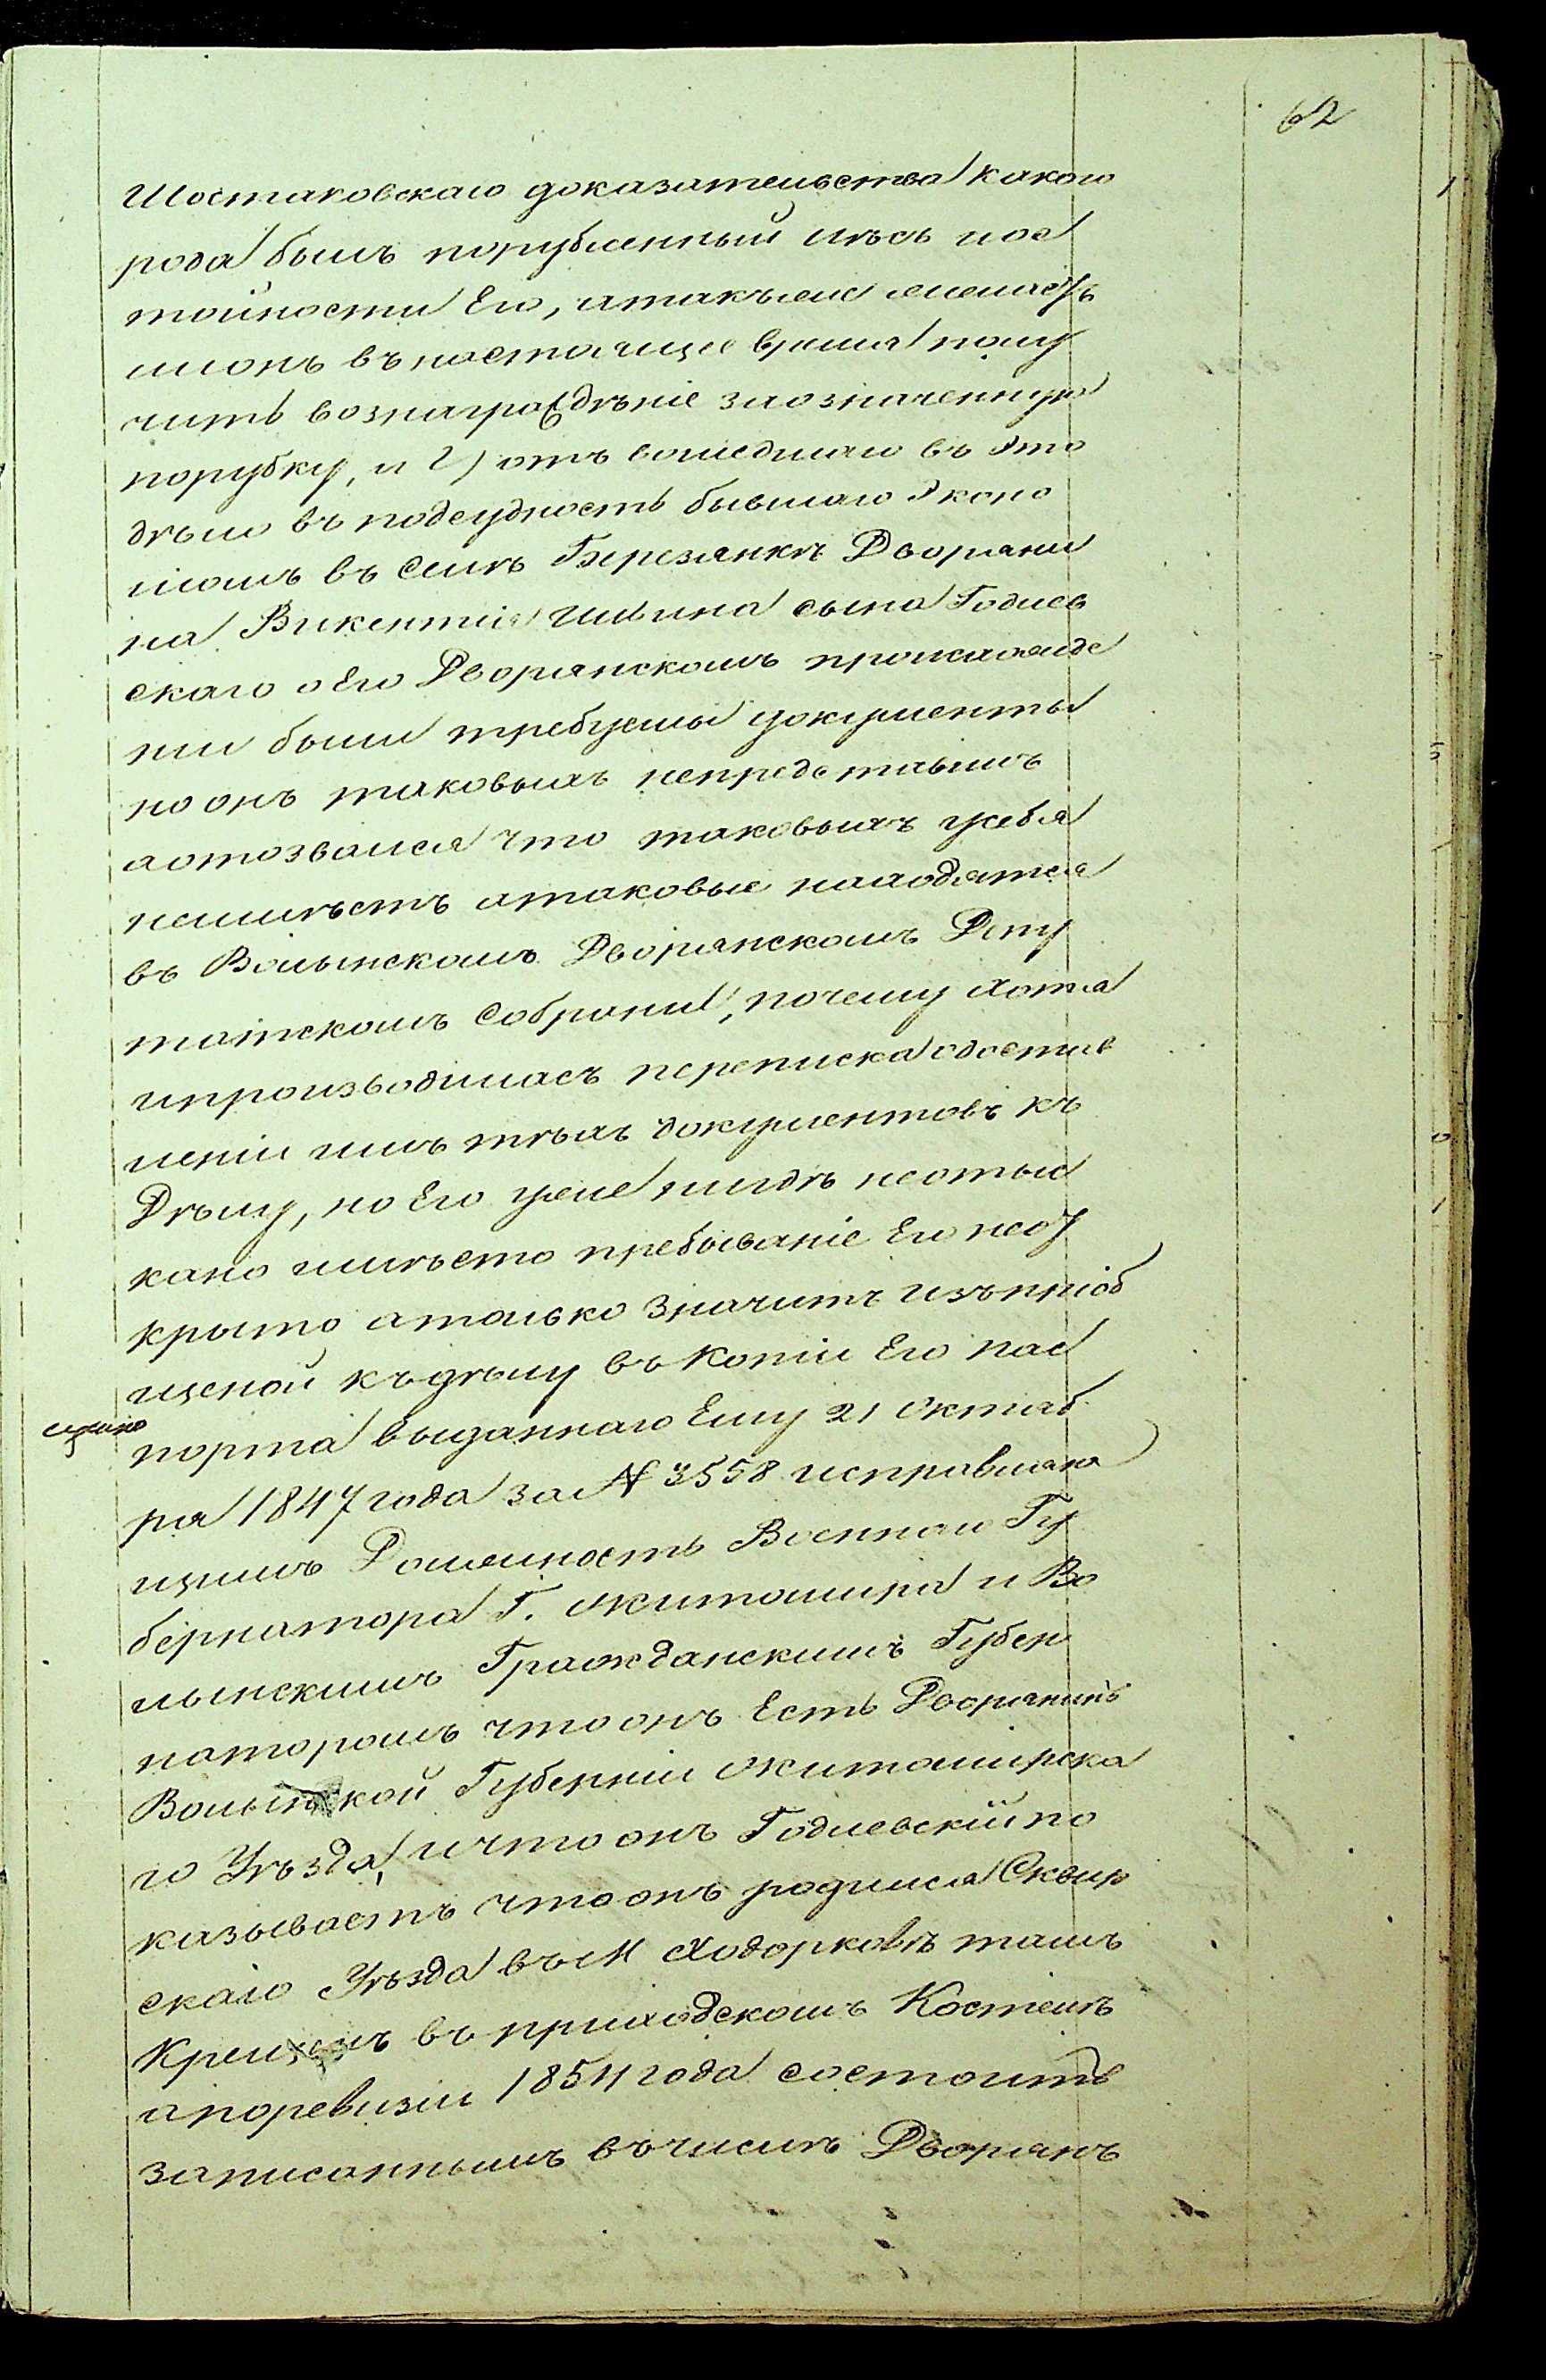 62
Шостаковскаго доказательства какого
рода былъ порубленный лѣсъ пос
тойности Его, атакъже желаетъ
лионъ въ настоящее время полу
чить вознагражденіе заозначенную
порубку, и 2) отъ вошедшаго въ это
дѣло въ подсудность бывшаго Эконо
момъ въ Селѣ Березянкѣ Дворяни
на Викентія Ильина сына Годлев
скаго о Его Дворянскомъ происхожде
нии были требуемы документы
но онъ таковыхъ непредставилъ
аотозвался что таковыхъ усебя
неимѣетъ атаковые находятся
въ Волынскомъ Дворянскомъ Депу
татскомъ Собрании, почему хотя
ипроизводилась переписка одостав
леніи имъ тѣхъ документовъ къ
Дѣлу, но Его уже нигдѣ неотыс
кано имѣсто пребываніе Его неот
крыто атолько Значитъ изъприоб
щеной къдѣлу въ Копіи Его пас
порта выданнаго Ему 21 Октяб
ря 1847 года за № 3558 исправляю
щимъ Должность Военнаго Гу
бернатора Г. Житомира и Во
лынскимъ Гражданскимъ Губер
наторомъ что онъ Есть Дворянинъ
Волынской Губерніи Житомирска
го Уѣзда, ичто онъ Годлевскій по
казываетъ что онъ родился Сквир
скаго Уѣзда въ М Ходорковѣ тамъ
Крещенъ въ приходскомъ Костелѣ
апоревизіи 1854 года состоитъ
записаннымъ въ числѣ Дворянъ